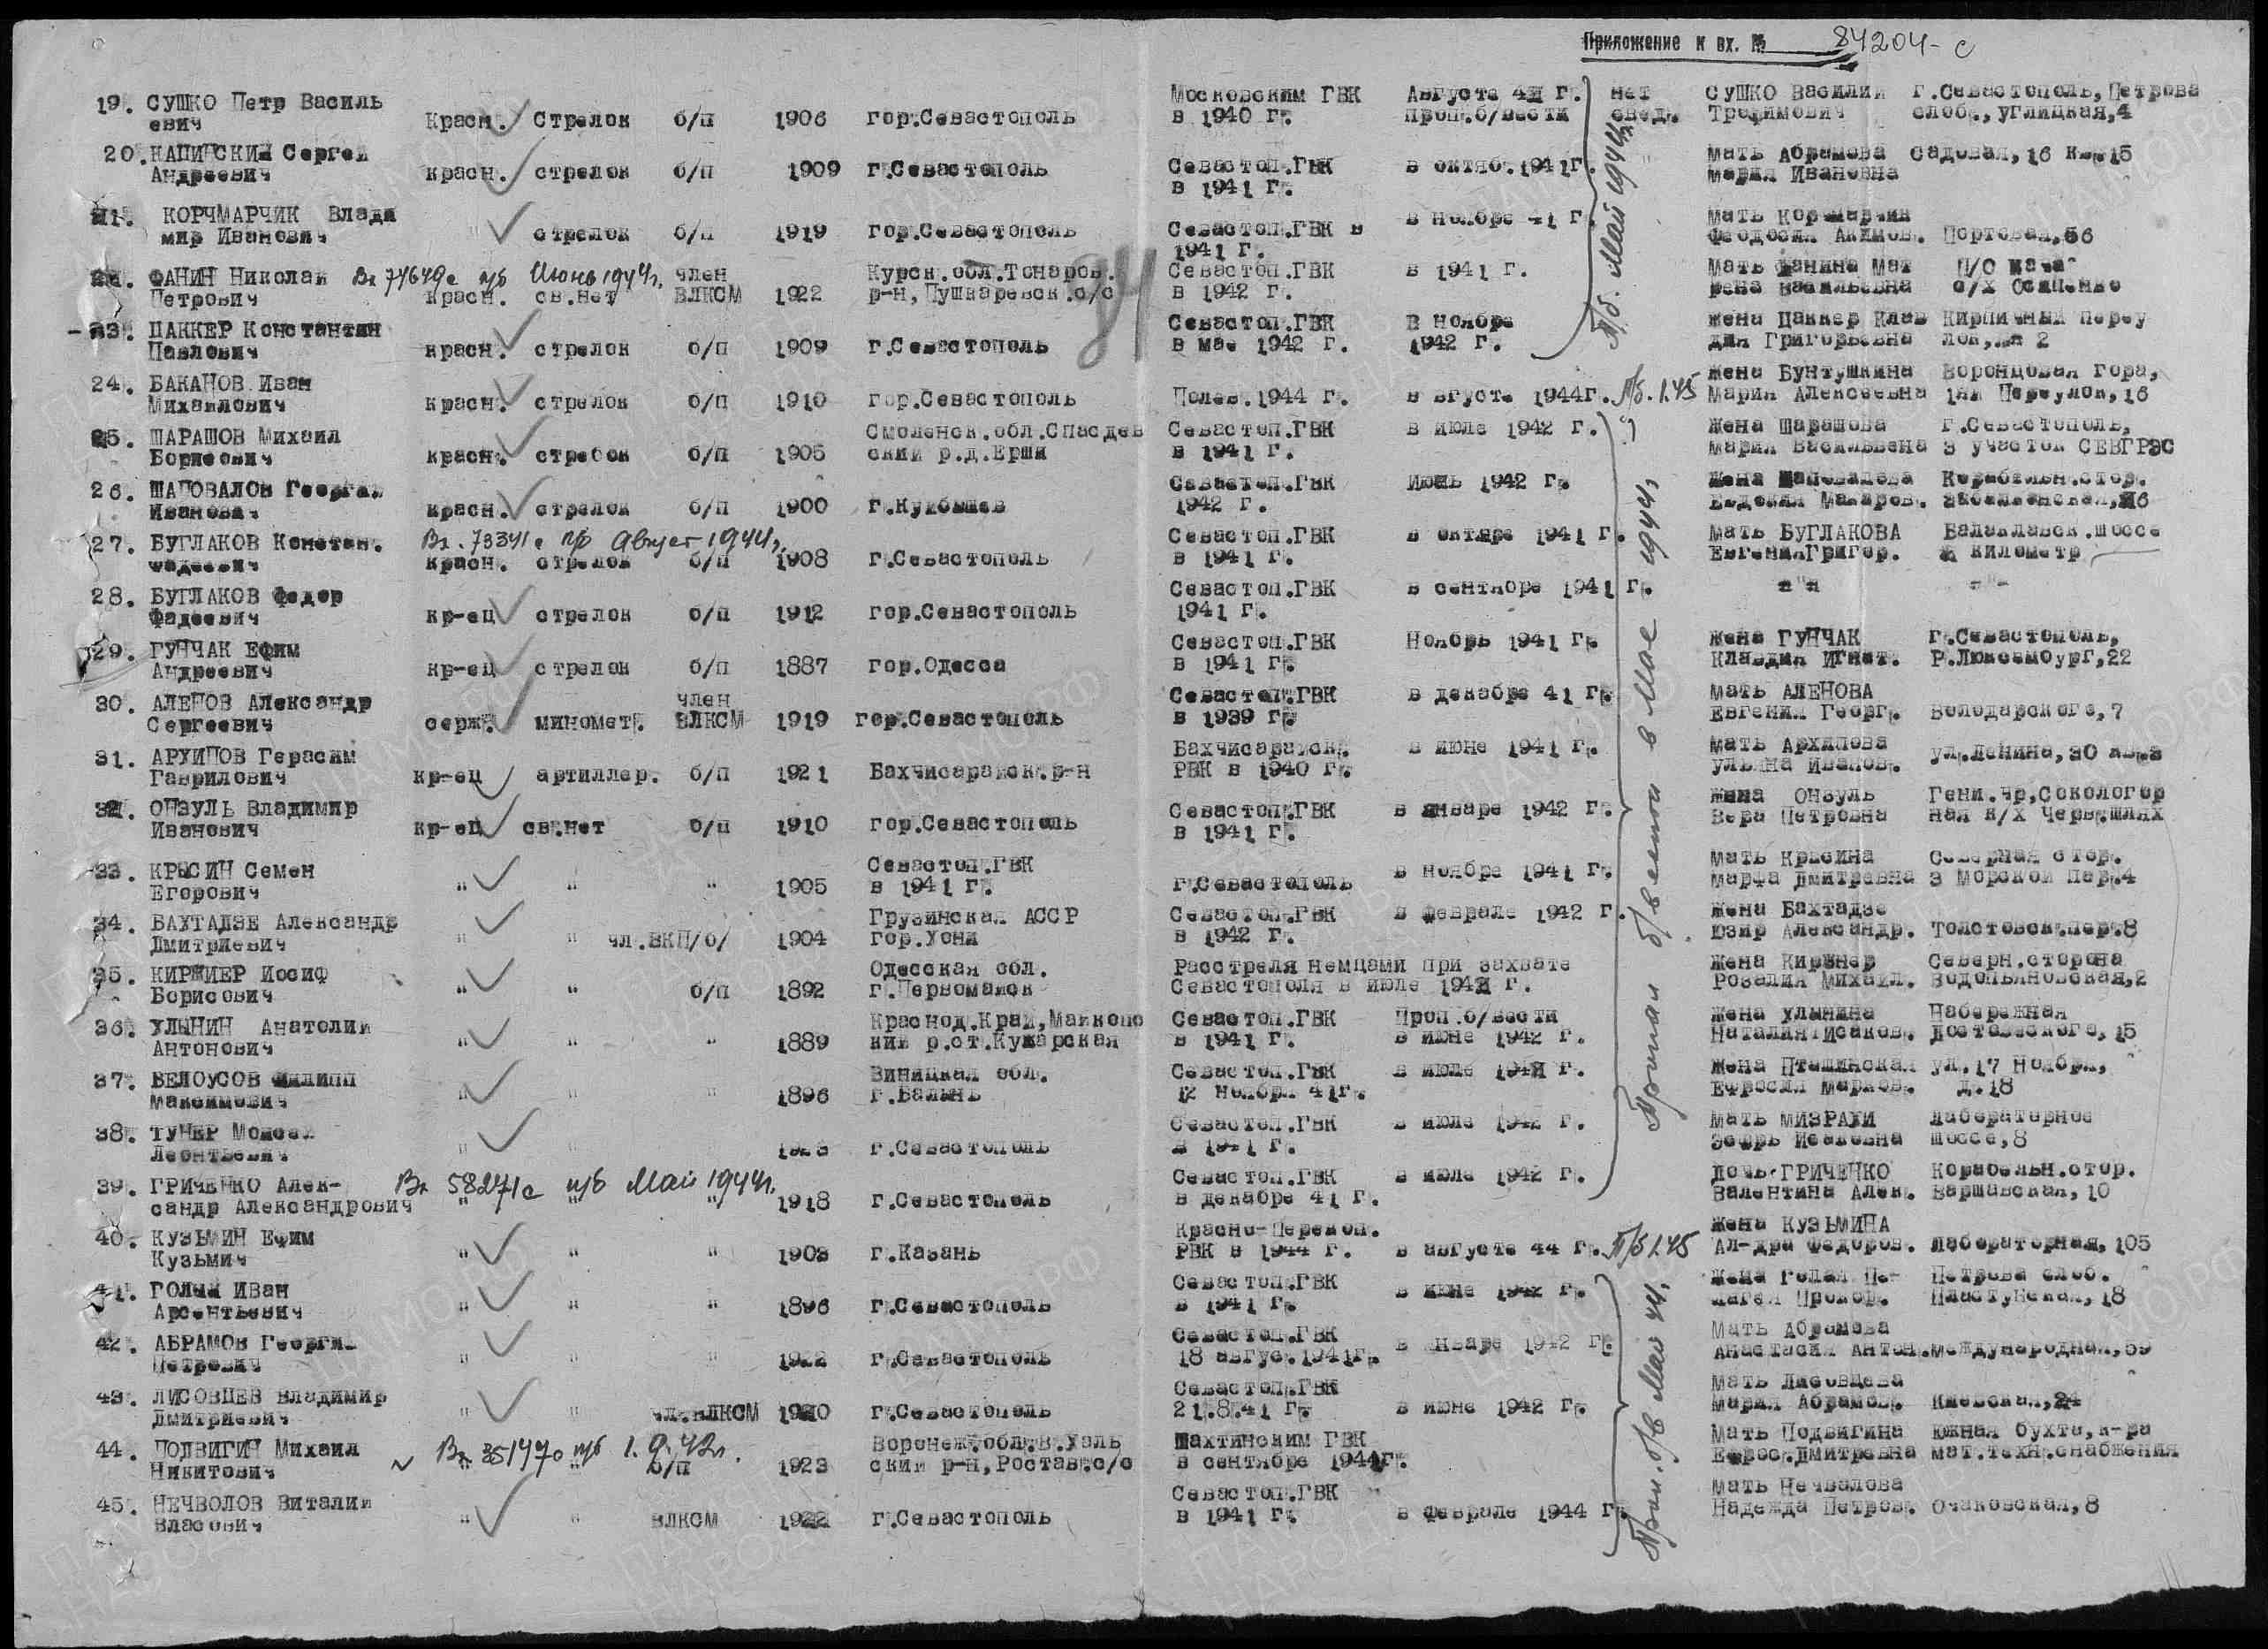 Приложение к вх. № 84204-с
19. СУШКО Петр Василь евич Красн. Стрелок б/п 1906 гор.Севастополь Московским ГВК в 1940 г. Августе 41 г. Проп.б/вести нет свед. СУШКО Василий Трофимович г.Севастополь, Петрова слоб., углицкая,4
20. Сергей Андреевич красн. стрелок б/п 1909 г.Севастополь Севастоп.ГВК в 1941 г. в октяб.1941г. " Мать Абрамова Мария Ивановна Садовая, 16 кв.15
21. КОРЧМАРЧИК Влади мир Иванович " стрелок б/п 1919 гор.Севастополь Севастоп.ГВК в 1941 г. в ноябре 41 г. Мать Корчмарчик Феодосия Акимов. Портовая,56
П/б. Май 1944г.
22. ФАНИН Николай Петрович Вх 77649с п/б Июнь 1944г. красн. св.нет член ВЛКСМ 1922 Курск.обл.Томаров. р-н, Пушкаревск.с/с Севастоп.ГВК в 1942 г. в 1941 г. Мать Фанина Мат рена Васильевна П/О Кача с/х Осипенко
23. ПАККЕР Константин Павлович красн. стрелок б/п 1909 г.Севастополь Севастоп.ГВК в мае 1942 г. В Ноябре 1942 г. жена Паккер Клав дия Григорьевна Кирпичный Переу лок, 2
24. БАКАНОВ Иван Михайлович красн. стрелок б/п 1910 гор.Севастополь Полев.1944 г. в вгусте 1944г. П/б. 1.45 жена Бунтушкина Мария Алексеевна Воронцовая Гора, 1ый Переулок, 16
25. ШАРАШОВ Михаил Борисович красн. стребок б/п 1905 Смоленск.обл.Спасдев ский р.д.Ерши Севастоп.ГВК в 1941 г. в июле 1942 г. жена Шарашова Мария Васильевена г.Севастополь, 3 участок СЕВГРЭС
26. ШАПОВАЛОВ Георгий Иванович красн. стрелок б/п 1900 г.Куйбышев Севастоп.ГВК 1942 г. Июнь 1942 г. Жена Шаповалова Евдокия Макаров. Корабельн.стор.
27. БУГЛАКОВ Констан. Фадеевич Вх. 73341с п/б Август 1944г. красн. стрелок б/п 1908 г.Севастополь Севастоп.ГВК в 1941 г. в октяре 1941 г. Мать БУГЛАКОВА ЕвгенияГригор. Балаклавск.шоссе километр
28. БУГЛАКОВ Федор Фадеевич кр-ец стрелок б/п 1912 гор.Севастополь Севастоп.ГВК 1941 г. в сентябре 1941 г. -"- -"-
29. ГУНЧАК Ефим Андреевич кр-ец стрелок б/п 1887 гор.Одесса Севастоп.ГВК в 1941 г. Ноябрь 1941 г. Жена ГУНЧАК Клавдия Игнат. г.Севастополь, Р.Люксембург,22
30. АЛЕНОВ Александр Сергеевич серж. миномет. член ВЛКСМ 1919 гор.Севастополь Севастоп.ГВК в 1939 г. в декабре 41 г. Мать АЛЕНОВА Евгения Георг. Володарского,7
31. АРХИПОВ Герасим Гаврилович кр-ец артиллер. б/п 1921 Бахчисарайск.р-н Бахчисарайск. РВК в 1940 г. в июне 1941 г. Мать Архипова ульяна Иванов. ул.Ленина,30 кв.3
32. ОНЗУЛЬ Владимир Иванович кр-ец св.нет б/п 1910 гор.Севастополь Севастоп.ГВК в 1941 г. в январе 1942 г. Жена ОНЗУЛЬ Вера Петровна Гени.чр,Сокологор ная к/х Черв.шлях
Пропал б/вестей в Мае 1944г.
33. КРЫСИН Семен Егорович " " " 1905 Севастоп.ГВК в 1941 г. г.Севастополь в ноябре 1941 г. Мать Крысина Марфа Дмитревна Северная стор. 3 Морской Пер.4
34. ВАХТАДЗЕ Александр Дмитриевич " " чл.ВКП/б/ 1904 Грузинская АССР гор.Хони Севастоп.ГВК в 1942 г. в феврале 1942 г. Жена Бахтадзе Юзир Александр. Толстовск.пер.8
35. КИРЖНЕР Иосиф Борисович " " б/п 1892 Одесская обл. г.Первомайск Расстреля немцами при захвате Севастополя в июле 1942 г. Жена Киржнер Розалия Михайл. Северн.сторона Водопьяновская,2
36. УЛЫНИН Анатолий Антонович " " " 1889 Краснод.Край,Майкопс кий р.ст.Кужорская Севастоп.ГВК в 1941 г. Проп.б/вести в июне 1942 г. Жена Улынина Наталия Исаков. Набережная Достоевского, 15
37. БЕЛОУСОВ Филипп Максимович " " " 1896 Виницкая обл. г. Севастоп.ГВК 12 Ноября 41г. в июле 1942 г. Жена Пташинская Ефросия Марков. ул.17 Ноября, д.18
38. ТУНЕР Моисей Леонтьевич " " г.Севастополь Севастоп.ГВК в 1941 г. в июле 1942 г. Мать МИЗРАХИ Эсфрь Исаковна лабораторное шоссе,8
39. ГРИЧЕНКО Алек- сандр Александрович Вх 58271с п/б Май 1944г. " " " 1918 г.Севастополь Севастоп.ГВК в декабре 41 г. в июле 1942 г. Дочь ГРИЧЕНКО Валентина Алек. Корабельн.стор. Варшавская, 10
40. КУЗЬМИН Ефим Кузьмич " " " 1903 г.Казань Красно-Перекоп. РВК в 1944 г. в августе 44 г. П/б 1.45 Жена КУЗЬМИНА Ал-дра Федоров. Лабораторная, 105
41. ГОЛАЙ Иван Арсентьевич " " 1896 г.Севастополь Севастоп.ГВК в 1941 г. в июне 1942 г. Жена Голай Пе- лагея Прокор. Петрова слоб. Пластунская, 18
42. АБРАМОВ Георгий Петрович " " " 1922 г.Севастополь Севастоп.ГВК 18 авгус.1941г. в январе 1942 г. Мать Абрамова Анастасия Антон. международная,59
43. ЛИСОВЦЕВ Владимир Дмитриевич " " чл.ВЛКСМ 1920 г.Севастополь Севастоп.ГВК 21.8.41 г. в июне 1942 г. Мать Лисовцева Мария Абрамов. Киевская,24
Проп. б/в Май 44г.
44. ПОДВИГИН Михаил Никитович Вх 351470 п/б 1.9.42г. б/п 1923 Воронеж.обл.в.Халь ский р-н,Ростав.с/с Шахтинским ГВК в сентябре 1944г. Мать Подвигина Ефрос.Дмитревна южная бухта,к-ра мат.техн.снабжения
45. НЕЧВОЛОВ Виталий Власович " " ВЛКСМ 1922 г.Севастополь Севастоп.ГВК в 1941 г. в феврале 1944 г. Мать Нечволова Надежда Петров. Очаковская,8